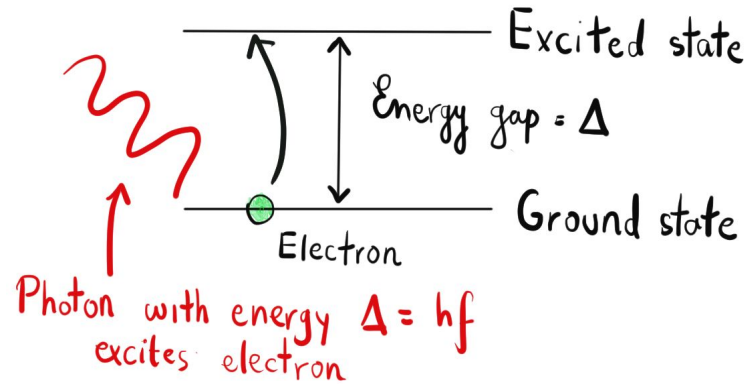 Excited state
Energy gap = Δ
Ground state
Electron
Photon with energy Δ = hf
excites electron